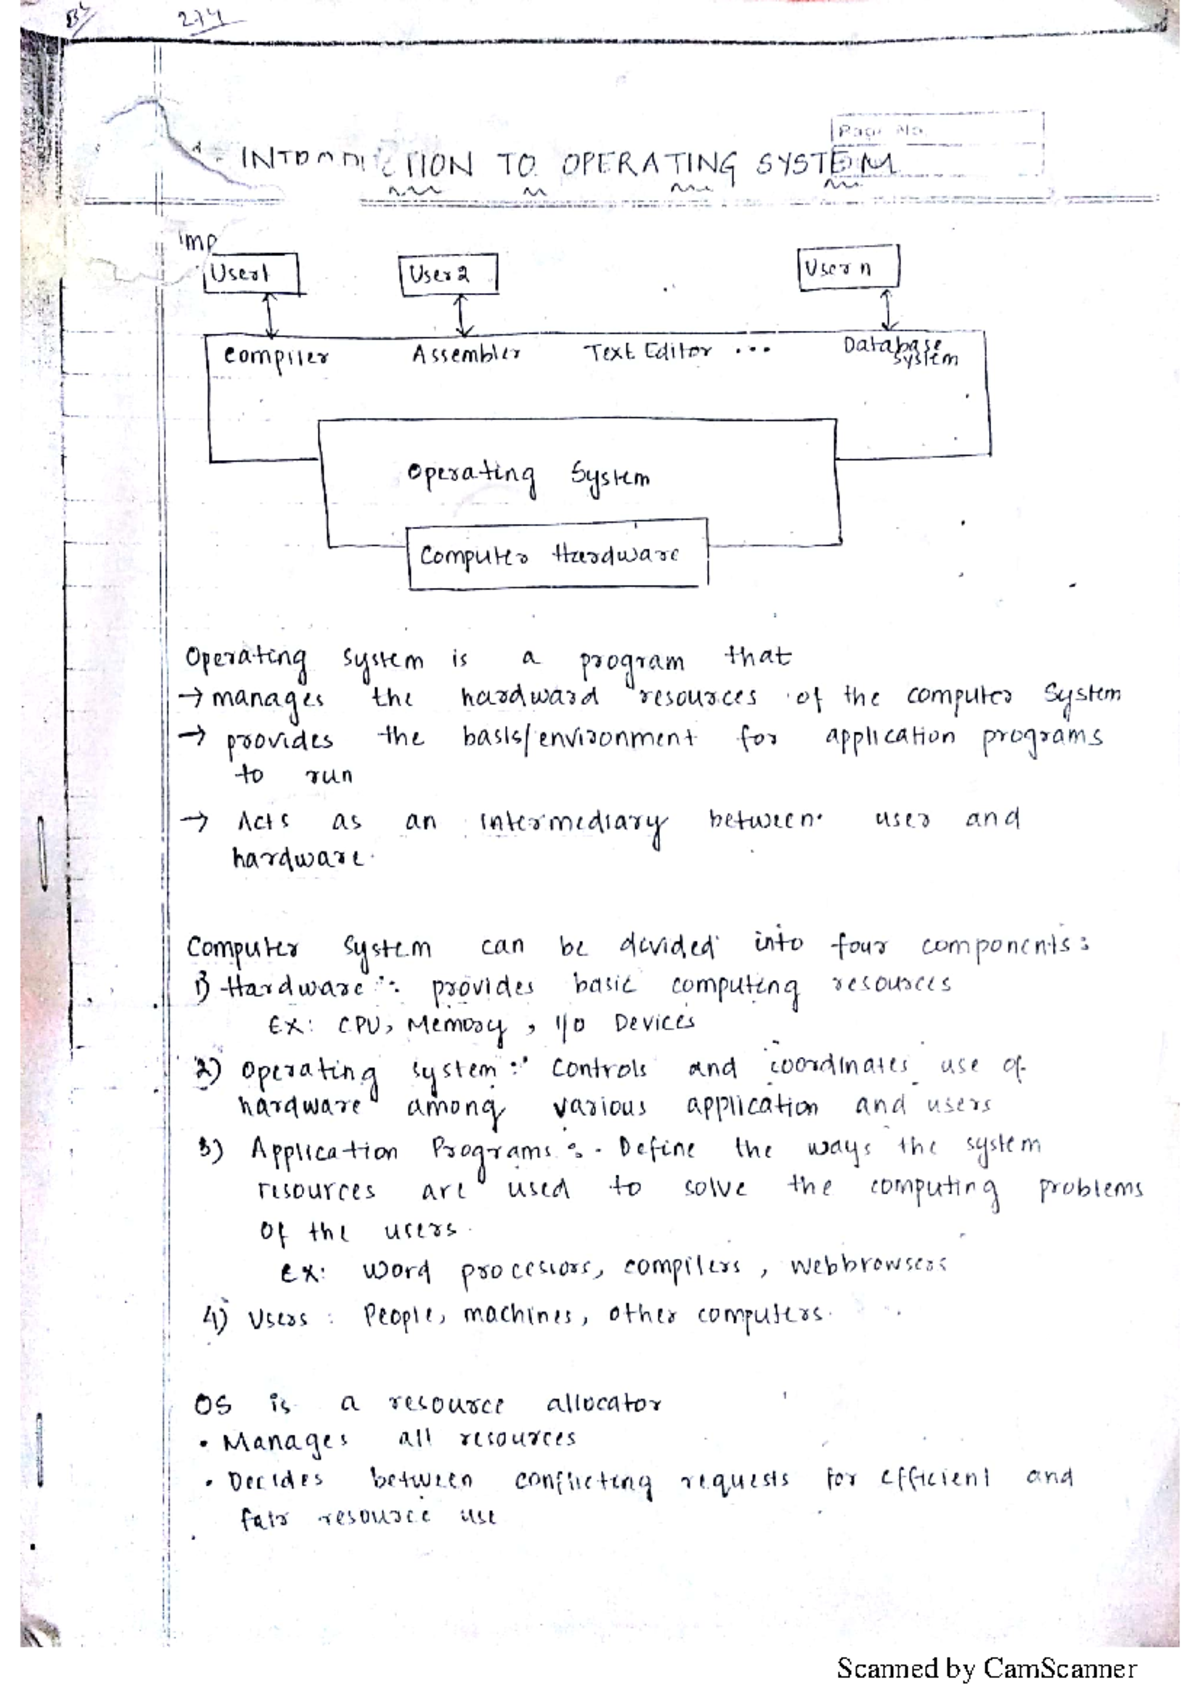 274
Page No.
INTRODUCTION TO OPERATING SYSTEM
imp
User1 User2 User n
Compiler Assembler Text Editor ... Database System
Operating System
Computer Hardware
Operating system is a program that
→ manages the hardward resources of the computer System
→ provides the basis/environment for application programs
to run
→ Acts as an intermediary between user and
hardware.
Computer system can be divided into four components:
1) Hardware: provides basic computing resources
EX: CPU, Memory, I/O Devices
2) Operating system: Controls and coordinates use of
hardware among various application and users
3) Application Programs: Define the ways the system
resources are used to solve the computing problems
of the users.
Ex: word processors, compilers, webbrowsers
4) Users: People, machines, other computers.
OS is a resource allocator
• Manages all resources
• Decides between conflicting requests for efficient and
fair resource use
Scanned by CamScanner